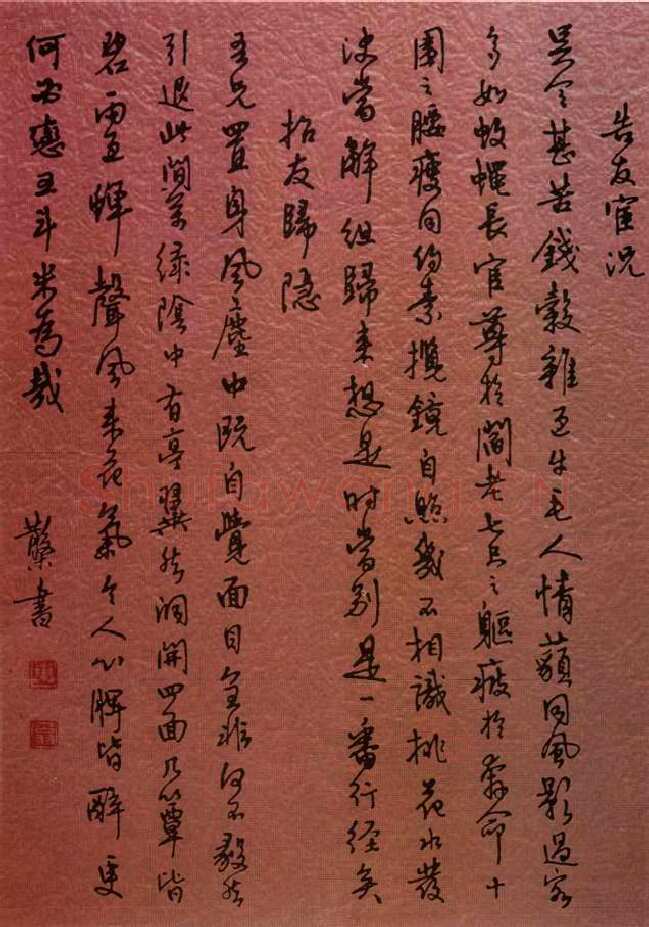 告友宦况
吳令甚苦錢穀雜亙牛毛人情藐同風影過客
多如蚊蠅長官尊於閻老七尺之軀疲於奔命十
圍之腰瘦同約素攬鏡自照幾不相識桃花水發
決當解組歸來想是時當別是一番行徑矣
招友歸隱
吾兄置身風塵中既自覺面目全非何不毅然
引退此間萬綠陰中有亭翼然洞開四面几簟皆
碧雨亙蟬聲風來花氣令人心脾皆醉更
何必戀五斗米為哉
書